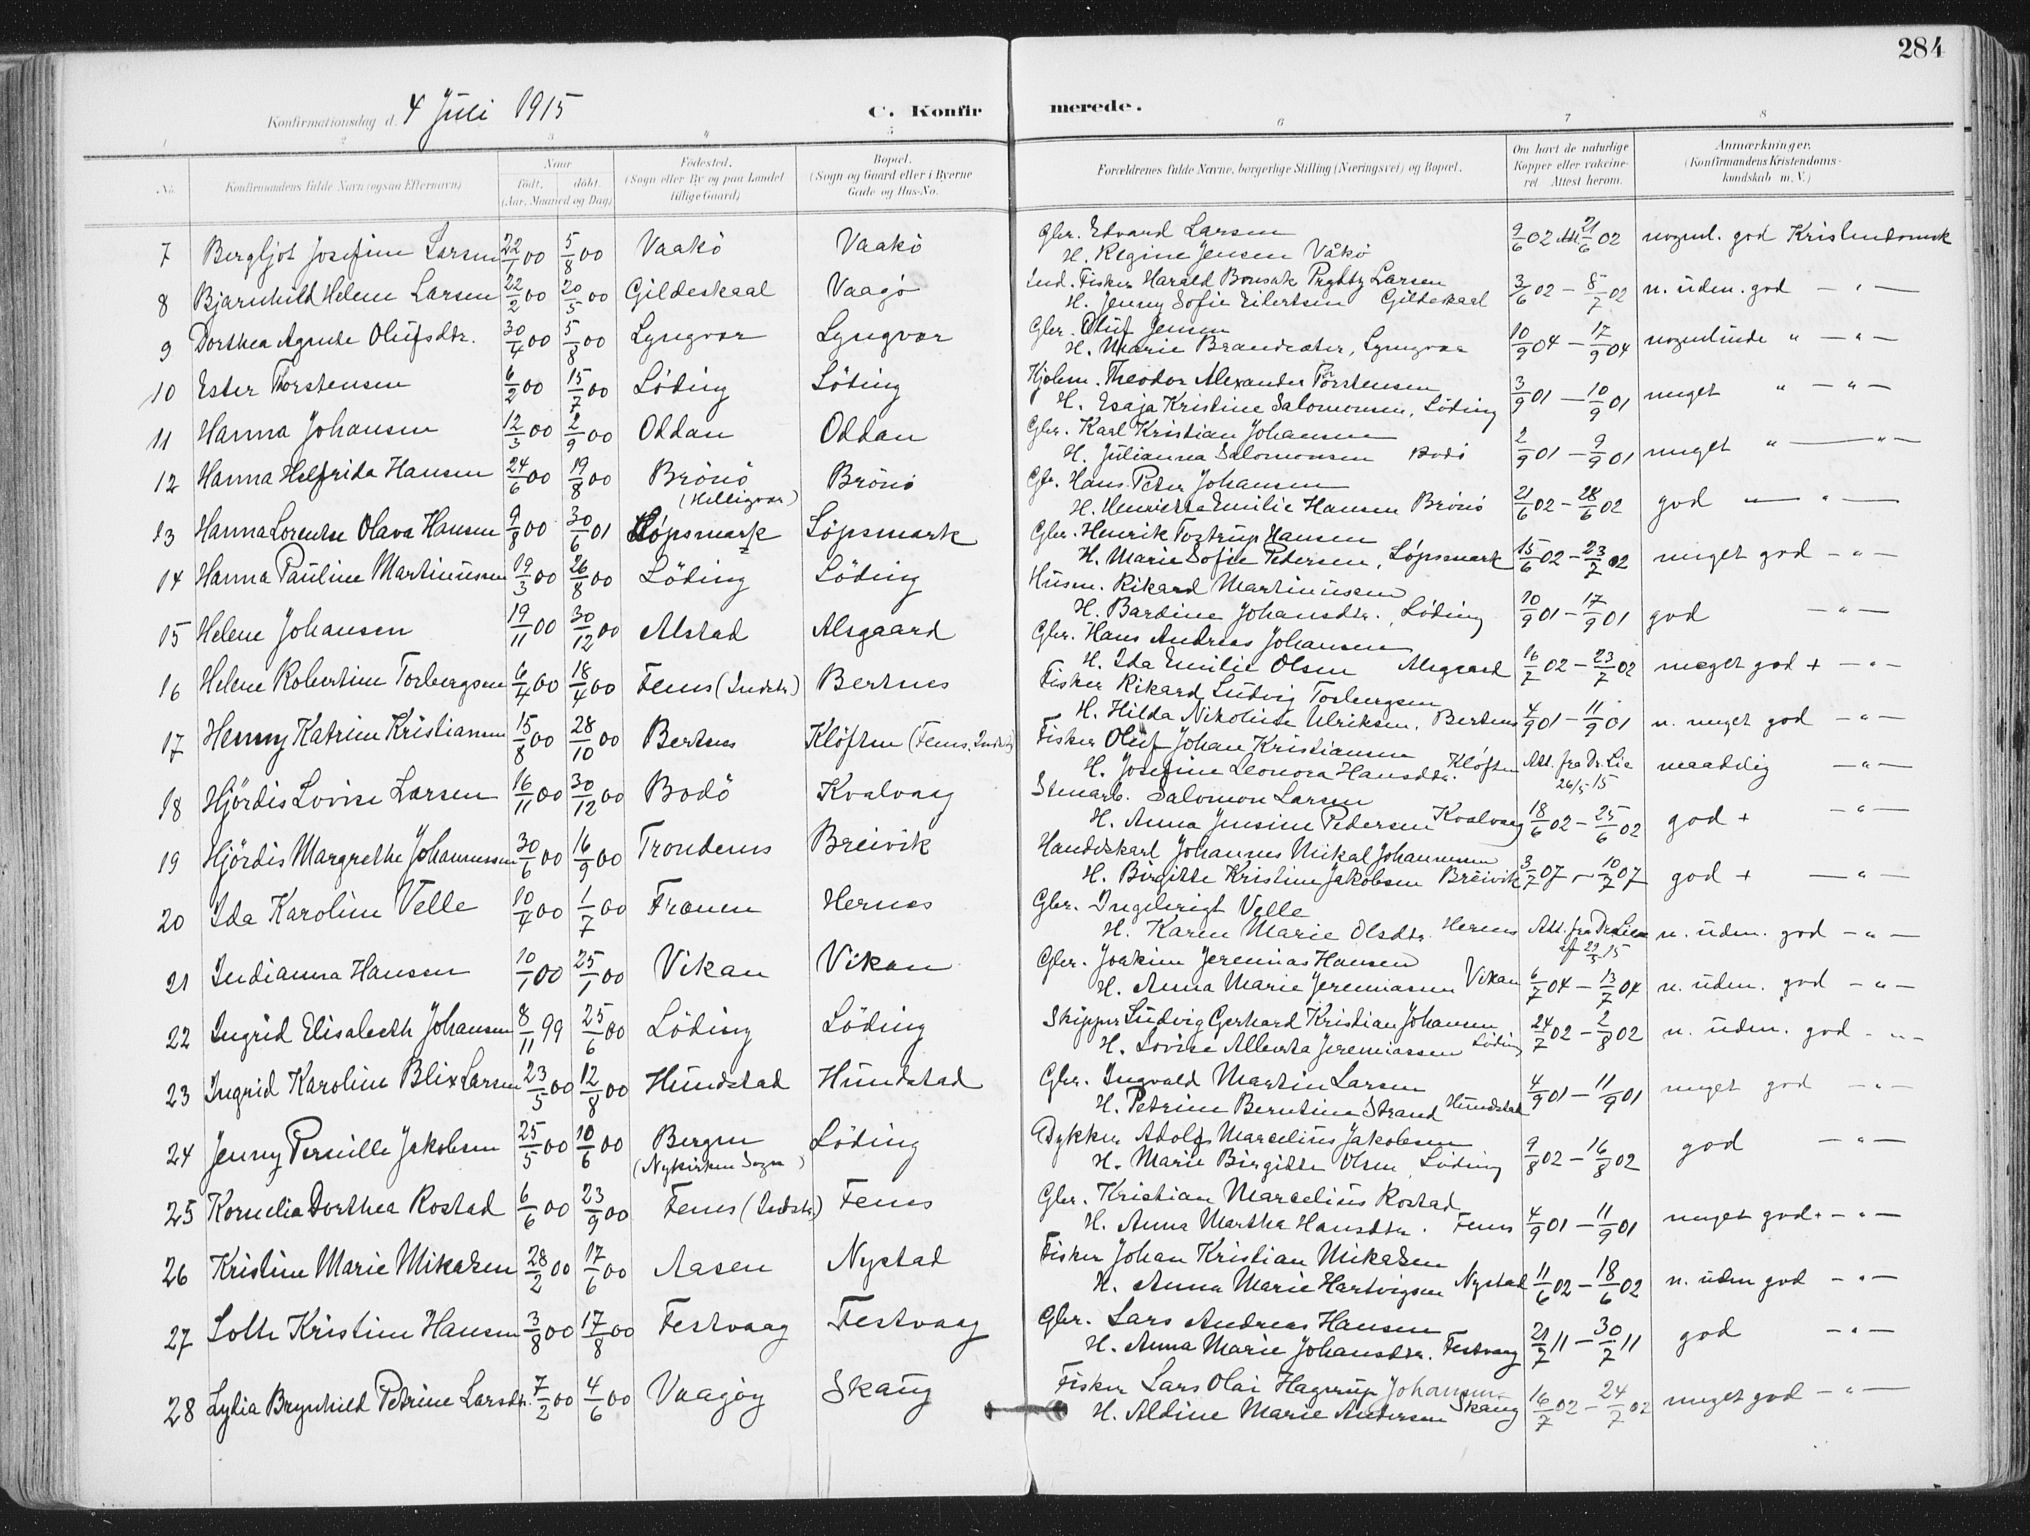 284
Konfirmationsdag d. 4 Juli 1915 C. Konfirmerede.
1 2 3 4 5 6 7 8
No. Konfirmandens fulde Navn (ogsaa Efternavn) Naar født. døbt. (Aar, Maaned og Dag) Fødested. (Sogn eller By og paa Landet tillige Gaard) Bopæl. (Sogn og Gaard eller i Byerne Gade og Hus-No. Forældrenes fulde Navne, borgerlige Stilling (Næringsvei) og Bopæl. Om havt de naturlige Kopper eller vakcineret Attest herom. Anmærkninger. (Konfirmandens Kristendomskundskab m. V.)
7 Bergljot Josefine Larsen 22/1 00 5/8 00 Vaakø Vaakø Gbr. Edvard Larsen
H. Regine Jensen Våkø 9/6 02 Att. 21/6 02 nogenl. god Kristendomsk
8 Bjarnhild Helene Larsen 22/2 00 20/5 00 Gildeskaal Vaagø Ind. Fisker Harald Larsen
H. Jenny Sofie Eilertsen Gildeskaal 3/6 02 - 8/7 02 n. uden. god - " -
9 Dorthea Agnete Olufsdtr. 30/4 00 5/8 00 Lyngvær Lyngvær Gbr. Oluf Jensen
H. Marie Brandsæter, Lyngvær 10/9 04 - 17/9 04 nogenlunde " - " -
10 Ester Torstensen 6/2 00 15/7 00 Løding Løding Kjøbm. Theodor Alexander Torstensen
H. Esaja Kristine Salomonsen, Løding 3/9 01 - 10/9 01 meget " - " -
11 Hanna Johansen 12/3 00 2/9 00 Oddan Oddan Gbr. Karl Kristian Johansen
H. Julianna Salomonsen Bodø 2/9 01 - 9/9 01 meget " - " -
12 Hanna Helfrida Hansen 24/6 00 19/8 00 Brønø (Helligvær) Brønø Gbr. Hans Peter Johansen
H. Henriette Emilie Hansen Brønø 21/6 02 - 28/6 02 god - " -
13 Hanna Lorentse Olava Hansen 9/8 00 30/6 01 Løpsmark Løpsmark Gbr. Henrik Tostrup Hansen
H. Marie Sofie Pedersen, Løpsmark 15/6 02 - 23/7 02 meget god - " -
14 Hanna Pauline Martinussen 19/3 00 26/8 00 Løding Løding Husm. Rikard Martinussen
H. Bardine Johansdtr., Løding 10/9 01 - 17/9 01 god - " -
15 Helene Johansen 19/11 00 30/12 00 Alstad Alsgaard Gbr. Hans Andreas Johansen
H. Ida Emilie Olsen Alsgaard 16/7 02 - 23/7 02 meget god + - " -
16 Helene Robertine Torbergsen 6/4 00 18/4 00 Fenes (Indstr.) Bertnes Fisker Rikard Ludvig Torbergsen
H. Hilda Nikoline Ulriksen, Bertnes 4/9 01 - 11/9 01 n. meget god - " -
17 Henny Katrine Kristiansen 15/8 00 28/10 00 Bertnes Kløften (Fenes, Indstr.) Fisker Oluf Johan Kristiansen
H. Josefine Leonora Hansdtr. Kløften Att. fra Dr. Lie 26/5 15 maadelig - " -
18 Hjördis Lovise Larsen 16/11 00 30/12 00 Bodö Kvalvaag Stenarb. Salomon Larsen
H. Anna Jensine Pedersen Kvalvaag 18/6 02 - 25/6 02 god + - " -
19 Hjördis Margrethe Johannessen 30/6 00 16/9 00 Trondenes Breivik Handelskarl Johannes Mikal Johannessen
H. Birgitte Kristine Jakobsen Breivik 3/7 07 - 10/7 07 god + - " -
20 Ida Karoline Velle 10/4 00 1/7 00 Fræna Hernes Gbr. Ingebrigt Velle
H. Karen Marie Olsdtr. Hernes Att. fra Dr. Lie af 29/5 15 n. uden. god - " -
21 Indianna Hansen 10/1 00 25/1 00 Vikan Vikan Gbr. Joakim Jeremias Hansen
H. Anna Marie Jeremiassen Vikan 6/7 04 - 13/7 04 n. uden. god - " -
22 Ingrid Elisabeth Johansen 8/11 99 25/6 00 Løding Løding Skipper Ludvig Gerhard Kristian Johansen
H. Lovise Alberta Jeremiassen Løding 24/7 02 - 2/8 02 n. uden. god - " -
23 Ingrid Karoline Blix Larsen 23/5 00 12/8 00 Hundstad Hundstad Gbr. Ingvald Martin Larsen
H. Petrine Berntine Strand Hundstad 4/9 01 - 11/9 01 meget god - " -
24 Jenny Pernille Jakobsen 25/5 00 10/6 00 Bergen (Nykirken Sogn) Løding Dykker Adolf Marselius Jakobsen
H. Marie Birgitte Olsen, Løding 9/8 02 - 16/8 02 god - " -
25 Kornelia Dorthea Rostad 6/6 00 23/9 00 Fenes (Indstr.) Fenes Gbr. Kristian Marselius Rostad
H. Anna Martha Hansdtr. Fenes 4/9 01 - 11/9 01 meget god + - " -
26 Kristine Marie Mikalsen 28/2 00 17/6 00 Aasen Nystad Fisker Johan Kristian Mikalsen
H. Anna Marie Hartvigsen Nystad 11/6 02 - 18/6 02 n. uden god - " -
27 Lotte Kristine Hansen 3/8 00 17/8 00 Festvaag Festvaag Gbr. Lars Andreas Hansen
H. Anna Marie Johansdtr. Festvaag 21/7 11 - 30/7 11 god - " -
28 Lydia Brynhild Petrine Larsdtr. 7/2 00 4/6 00 Vaagøy Skaug Fisker Lars Olai Hagerup Johansen
H. Aldine Marie Andersen Skaug 16/7 02 - 24/7 02 meget god - " -